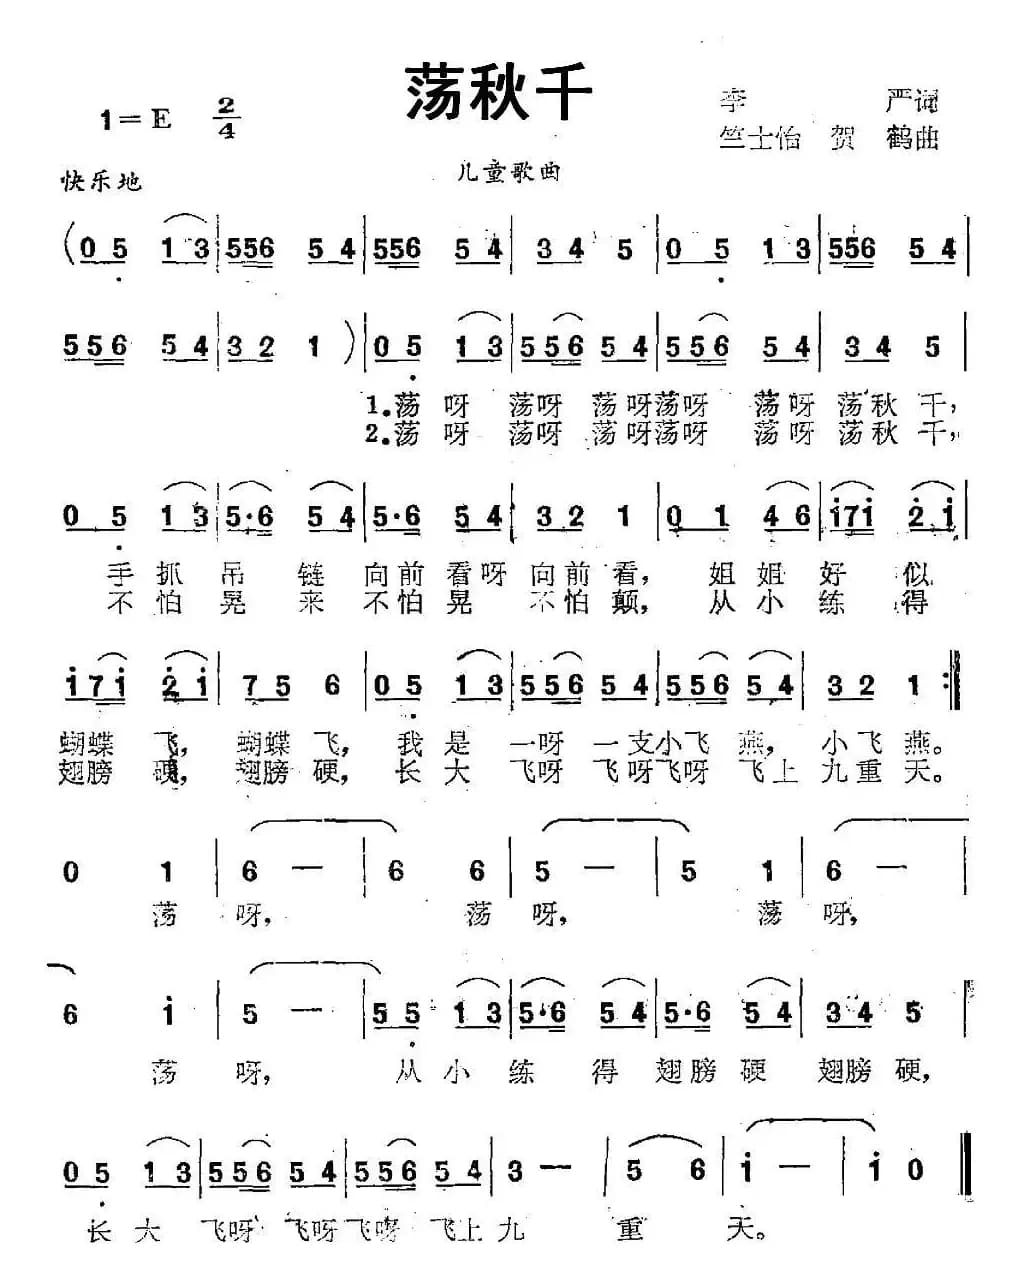 荡秋千
1=E 2/4
李 严词
竺士怡 贺 鹤曲
快乐地
儿童歌曲
(0 5 1 3 | 556 5 4 | 556 5 4 | 3 4 5 | 0 5 1 3 | 556 5 4 |
556 5 4 | 3 2 1 ) | 0 5 1 3 | 556 5 4 | 556 5 4 | 3 4 5 |
1.荡 呀 荡呀 荡呀荡呀 荡呀 荡秋 千,
2.荡 呀 荡呀 荡呀荡呀 荡呀 荡秋 千,
0 5 1 3 | 5·6 5 4 | 5·6 5 4 | 3 2 1 | 0 1 4 6 | i7i 2 i |
手 抓 吊 链 向前 看呀 向前 看, 姐 姐 好 似
不 怕 晃 来 不怕 晃 不怕 颠, 从 小 练 得
i7i 2 i | 7 5 6 | 0 5 1 3 | 556 5 4 | 556 5 4 | 3 2 1 :|
蝴蝶 飞, 蝴蝶 飞, 我 是 一呀 一支小飞 燕, 小飞 燕。
翅膀 硬, 翅膀 硬, 长 大 飞呀 飞呀飞呀 飞上 九重 天。
0 1 | 6 — | 6 6 | 5 — | 5 1 | 6 — |
荡 呀, 荡 呀, 荡 呀,
6 i | 5 — | 5 5 1 3 | 5·6 5 4 | 5·6 5 4 | 3 4 5 |
荡 呀, 从 小 练 得 翅膀 硬 翅膀 硬,
0 5 1 3 | 556 5 4 | 556 5 4 | 3 — | 5 6 | i — | i 0 ‖
长 大 飞呀 飞呀飞呀 飞上 九 重 天。